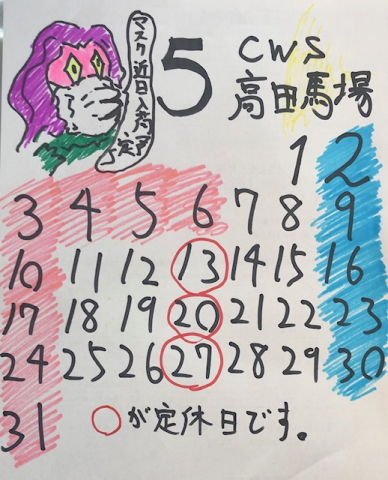 マスク近日入荷予定
5
CWS
高田馬場
1 2
3 4 5 6 7 8 9
10 11 12 13 14 15 16
17 18 19 20 21 22 23
24 25 26 27 28 29 30
31
○が定休日です。